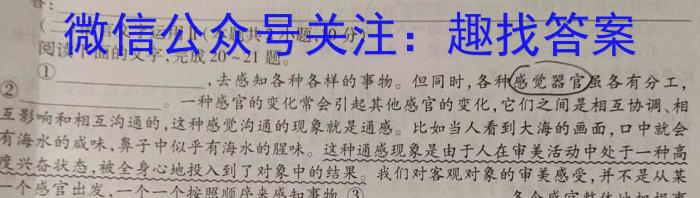 答：
微信公众号关注：趣找答案
阅读下面的文字，完成20~21题。
①，去感知各种各样的事物。但同时，各种感觉器官虽各有分工，
②。一种感官的变化常会引起其他感官的变化，它们之间是相互协调、相
互影响和相互沟通的，这种感觉沟通的现象就是通感。比如当人看到大海的画面，口中就会
有海水的咸味，鼻子中似乎有海水的腥味。这种通感现象是由于人在审美活动中处于一种高
度兴奋状态，被全身心地投入到了对象中的结果。我们对客观对象的审美感受，并不是从某
一个感官出发，一个一个按照顺序来感知事物，③